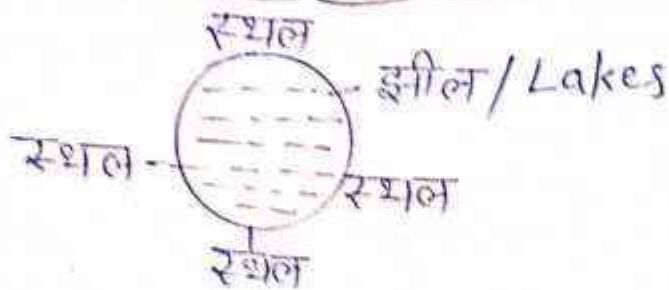 स्थल
झील / Lakes
स्थल
स्थल
स्थल